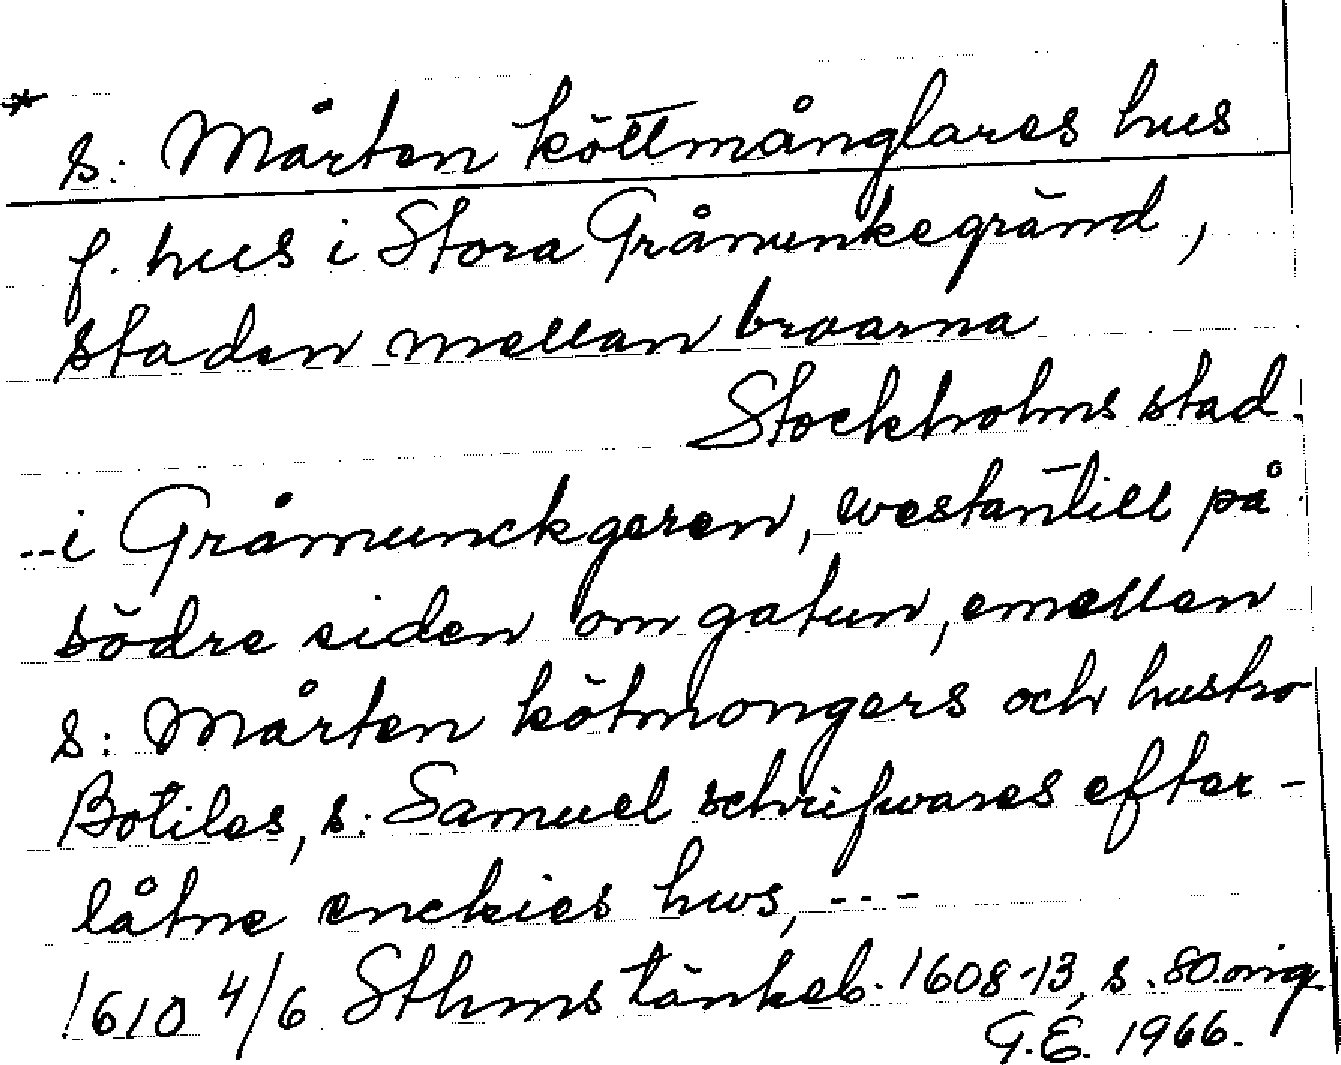 * s: Mårten köttmånglares hus
f. hus i Stora Gråmunkegränd,
staden mellan broarna
Stockholms stad.
--i Gråmunckgeren, westantill på
södre siden om gatun, emellen
s: Mårten kötmongers och hustro
Botiles, s: Samuel schrifwares efter-
låtne enckies hws, ---
1610 4/6 Sthms tänkeb. 1608-13, s. 80. orig.
G.E. 1966.